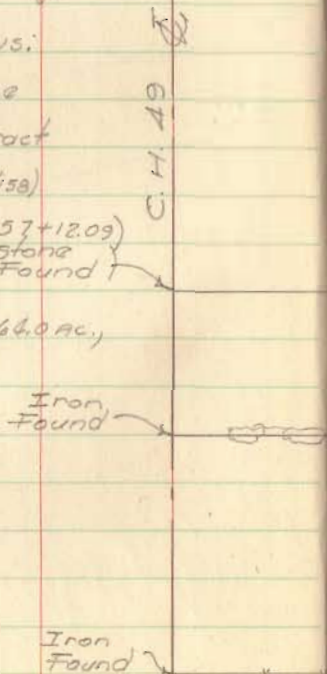 us:
e
C. H. 49
act
58)
57+12.09)
stone
Found
64.0 AC.,
Iron
Found
Iron
Found